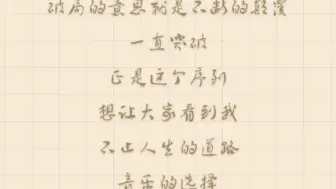 破局的意思就是不断的颠覆
一直突破
正是这个序列
想让大家看到我
不止人生的道路
音乐的选择